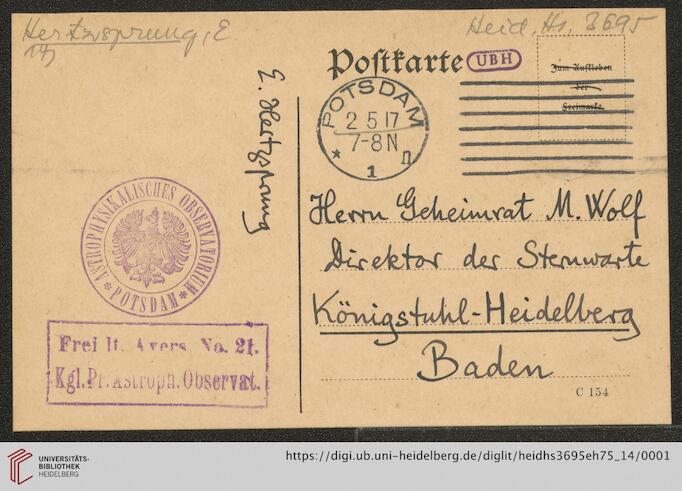 Hertzsprung, E.
Heid. Hs. 3695
Postkarte
UBH
Zum Aufkleben
der
Freimarke.
POTSDAM
2 5 17
7-8 N
* 1 n
E. Hertzsprung
Herrn Geheimrat M. Wolf
Direktor der Sternwarte
Königstuhl-Heidelberg
Baden
C 154
* ASTROPHYSIKALISCHES OBSERVATORIUM *
POTSDAM
Frei lt. Avers. No. 21.
Kgl. Pr. Astroph. Observat.
UNIVERSITÄTS-
BIBLIOTHEK
HEIDELBERG
https://digi.ub.uni-heidelberg.de/diglit/heidhs3695eh75_14/0001